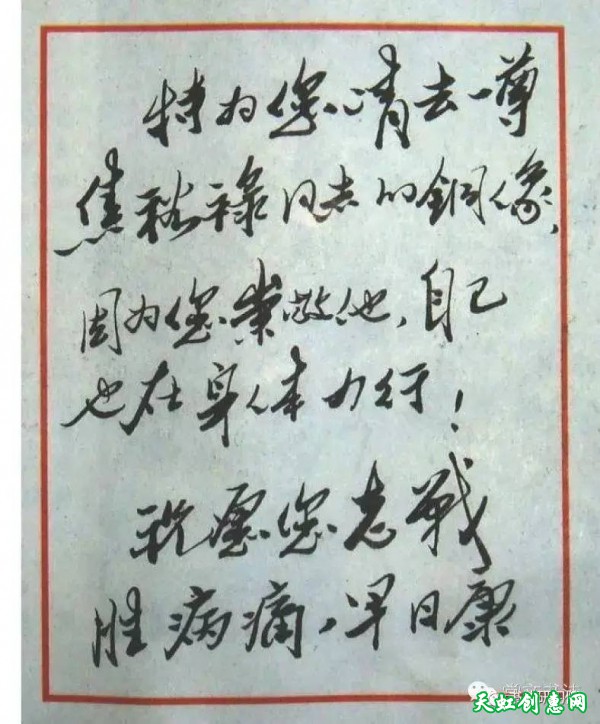 特为您请去一尊
焦裕禄同志的銅像，
因为您崇敬他，自己
也在身体力行！
祝愿您志戰
胜病痛，早日康
天虹创惠网